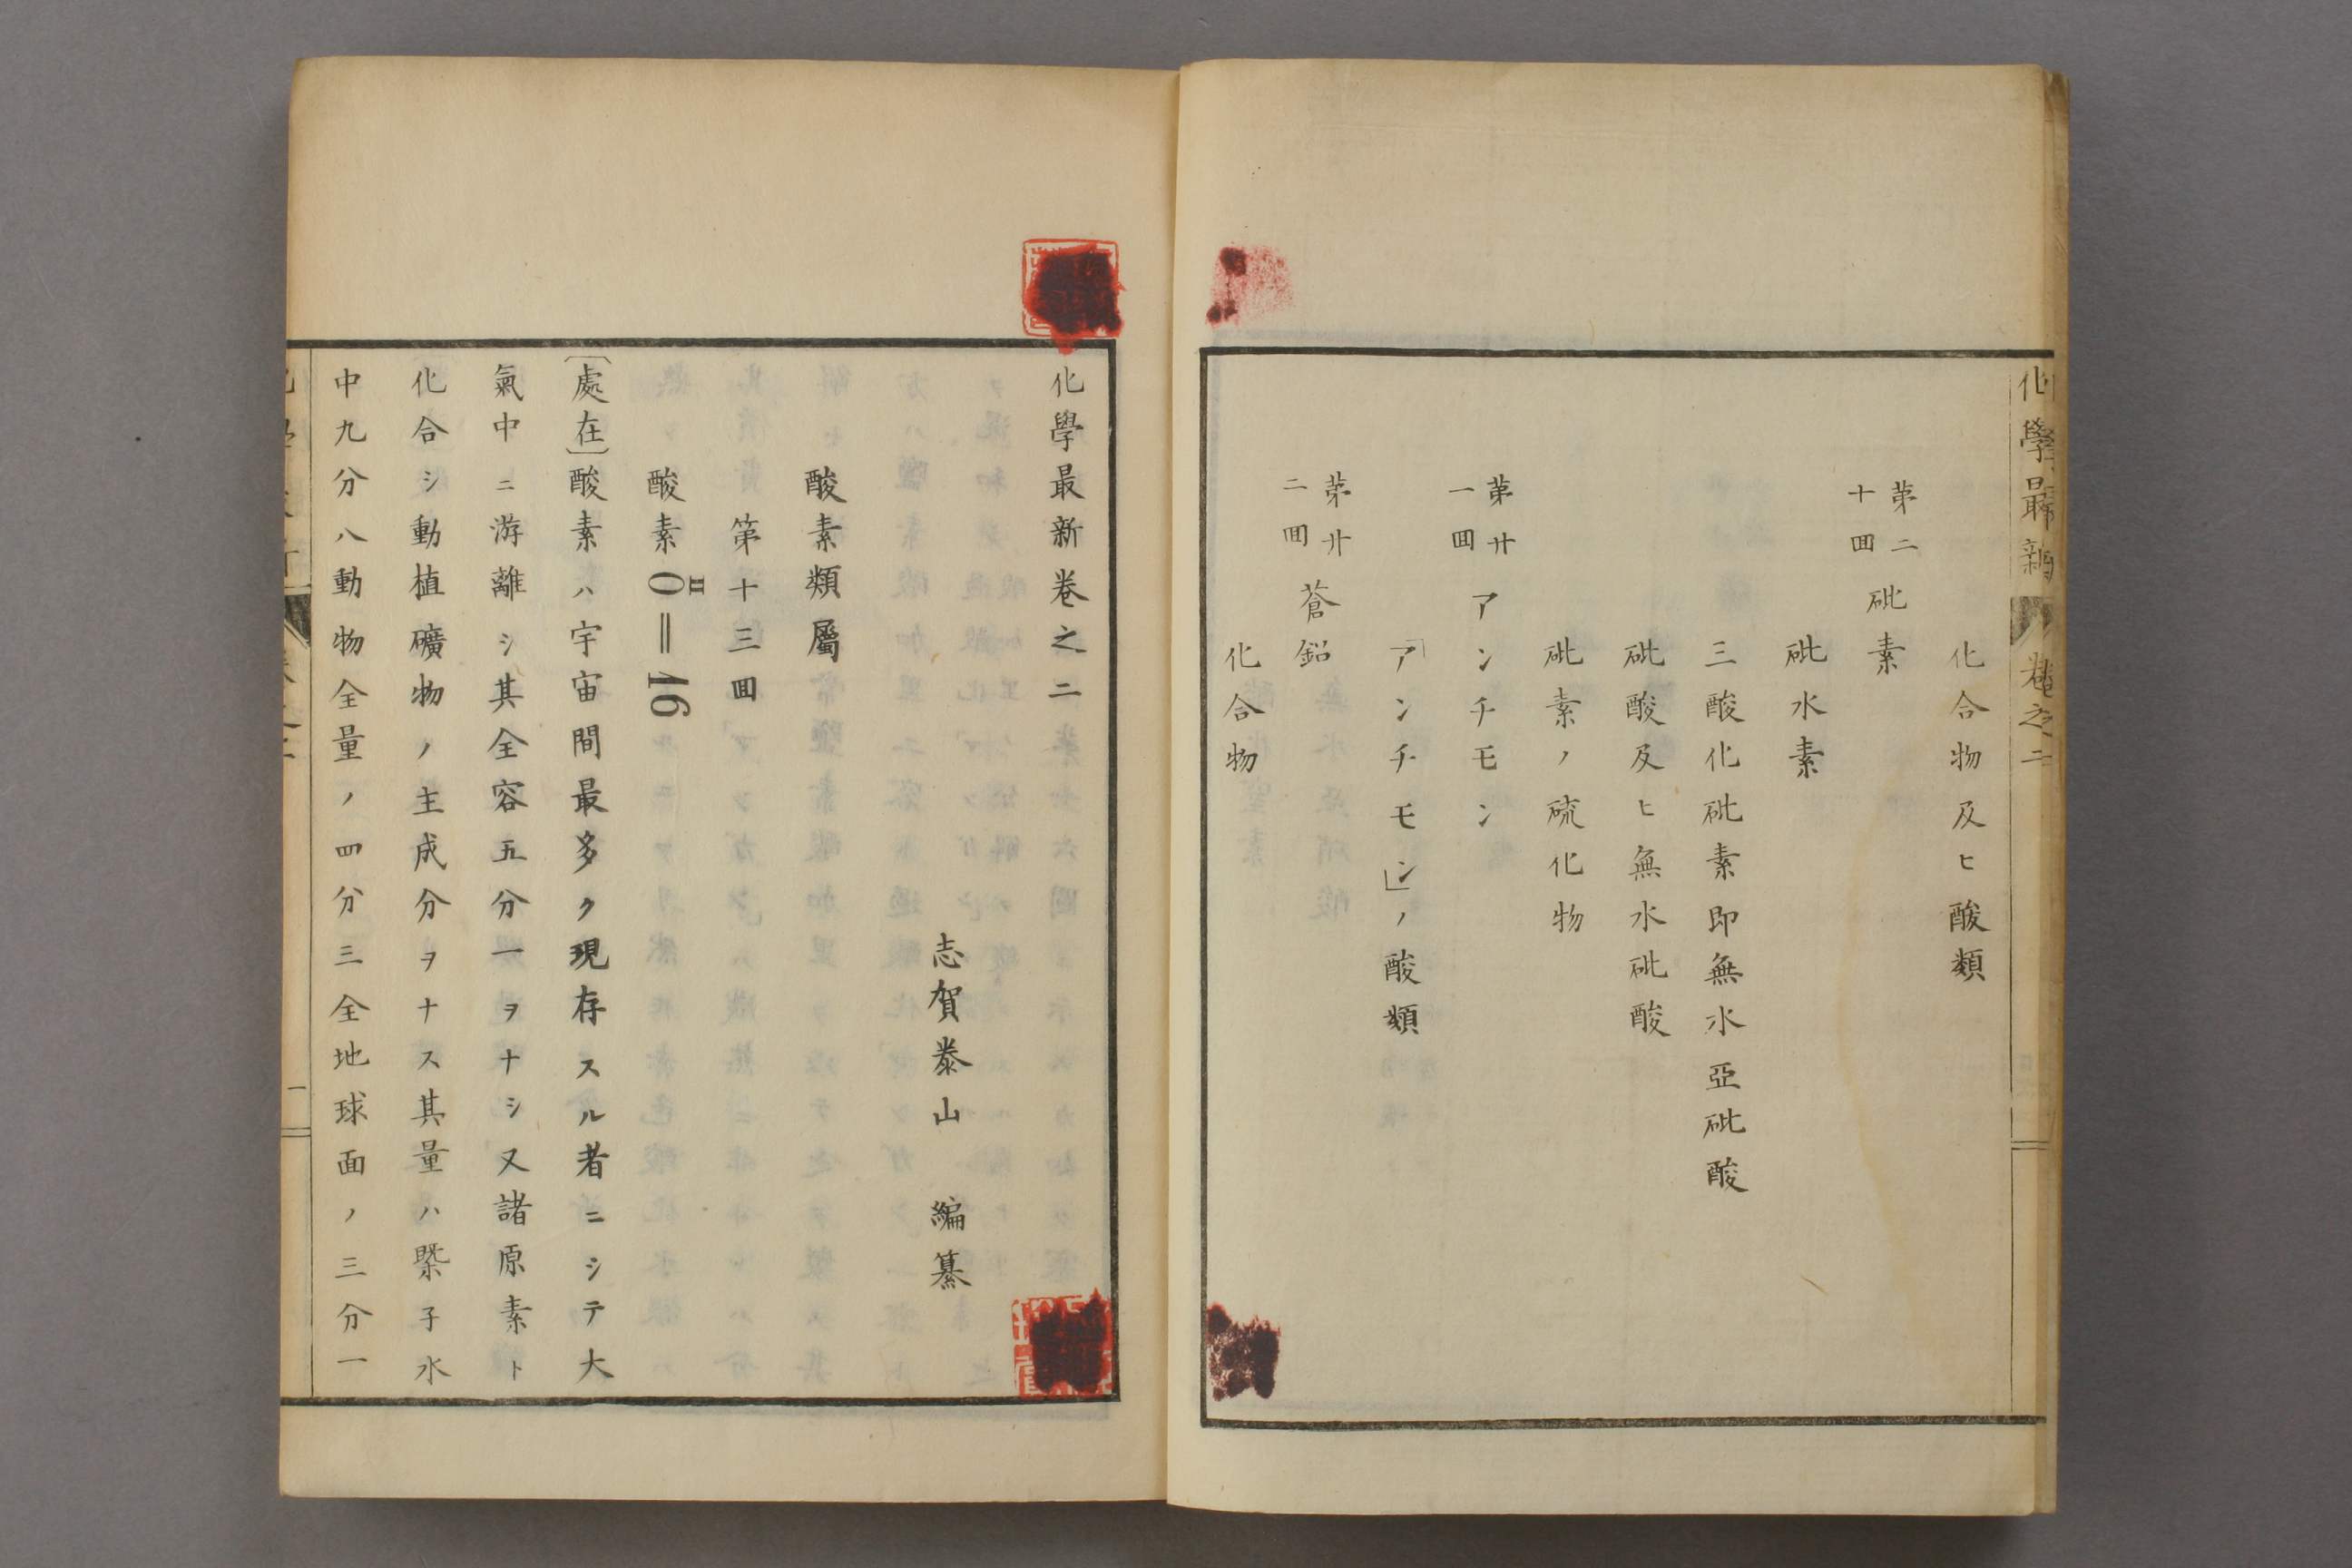 化學最新 卷之二
化合物及ヒ酸類
第二十囬 砒素
砒水素
三酸化砒素即無水亞砒酸
砒酸及ヒ無水砒酸
砒素ノ硫化物
第廿一囬 アンチモン
「アンチモン」ノ酸類
第廿二囬 蒼鉛
化合物
化學最新卷之二
志賀泰山 編纂
酸素類屬
第十三囬
酸素 O=16
II
〔處在〕酸素ハ宇宙間最多ク現存スル者ニシテ大
氣中ニ游離シ其全容五分一ヲナシ又諸原素ト
化合シ動植礦物ノ主成分ヲナス其量ハ槩子水
中九分八動物全量ノ四分三全地球面ノ三分一